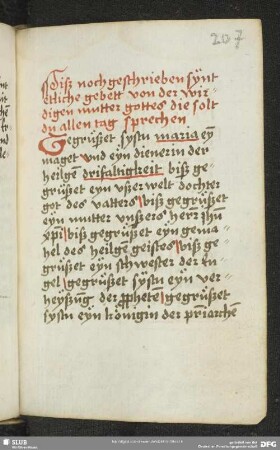 207
Diß noch geschrieben synt
etliche gebett von der wir-
digen mutter gottes die solt
du allen tag sprechen
Gegrüßet systu maria eyn
maget vnd eyn dienerin der
heilgen drifaltigkeit biß ge-
grüßet eyn vßer welt dochter
got des vatters biß gegrüßet
eyn mutter vnßers herr jhu
xpi biß gegrüßet eyn gema-
hel des heilgen geistes biß ge-
grüßet eyn schwester der en-
gel gegrüßet systu eyn ver-
heyßung der ppheten gegrüßet
systu eyn königin der priarchen
SLUB
DFG